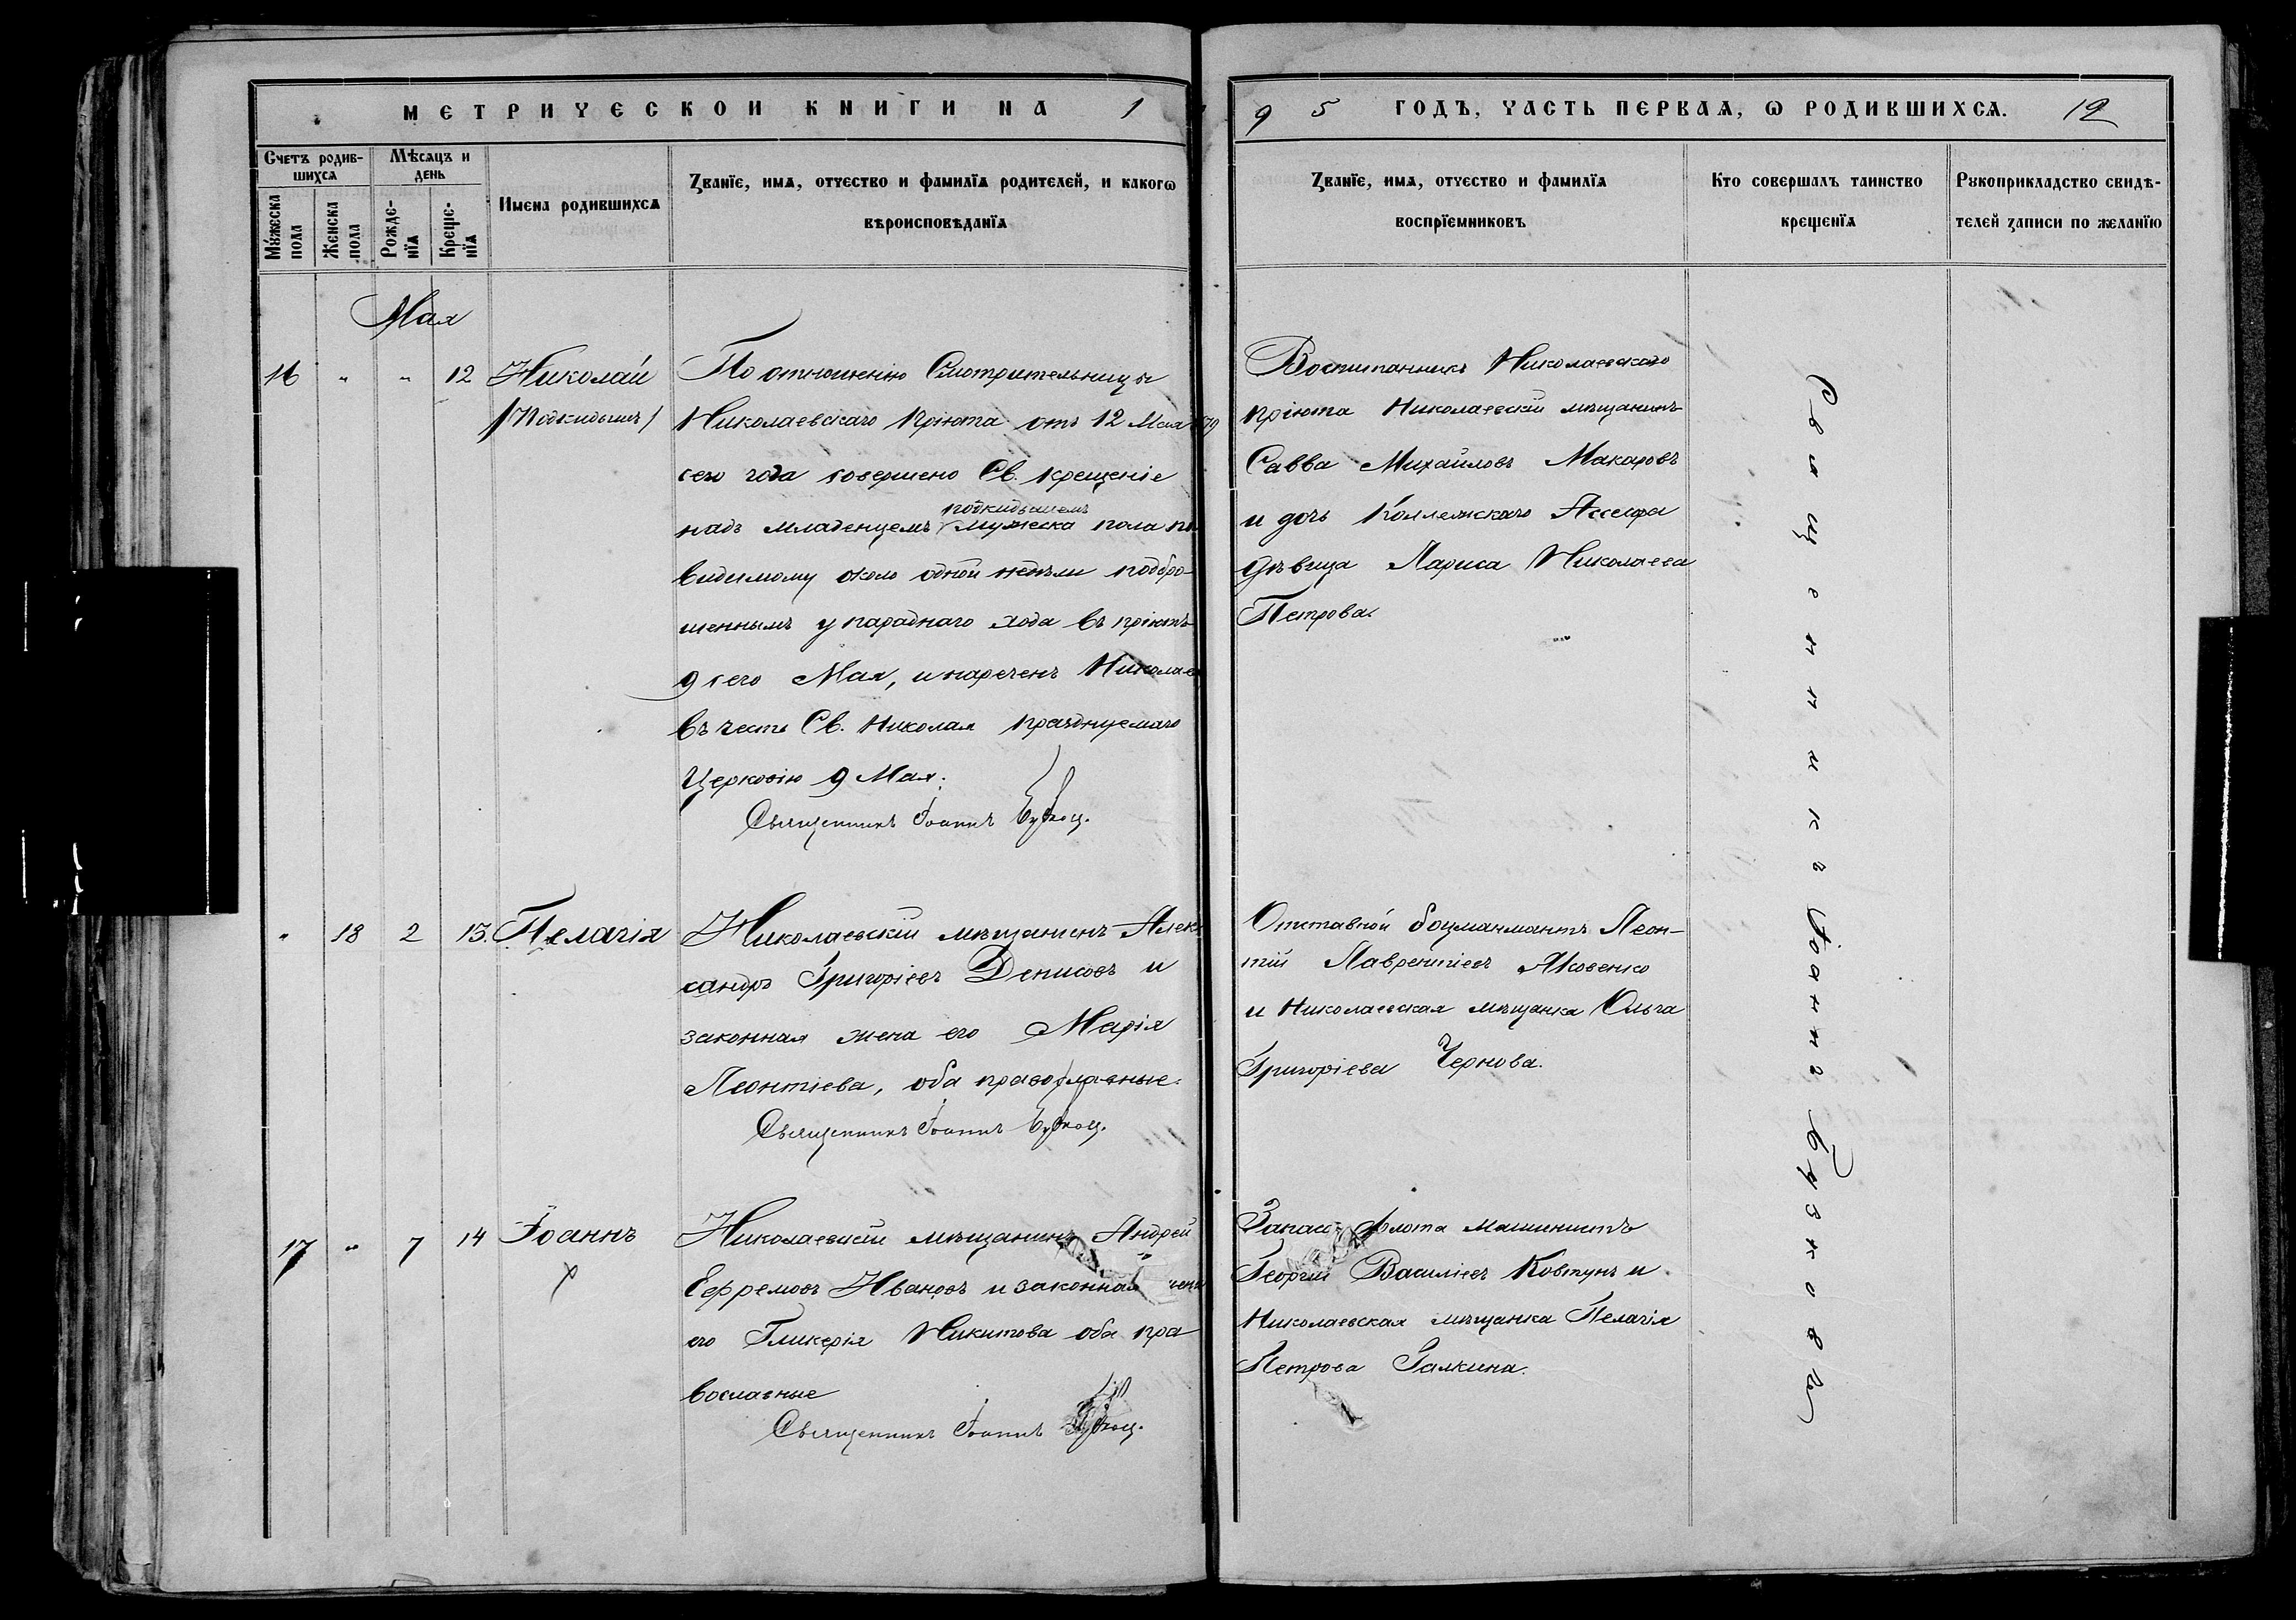 МЕТРИЧЕСКОЙ КНИГИ НА 1 9 5 ГОДЪ, ЧАСТЬ ПЕРВАЯ, Ѡ РОДИВШИХСѦ. 12
Счетъ родив-
шихсѧ
Мѣсѧцъ и
день
Мꙋжеска
пола
Женска
пола
Рожде-
нїѧ
Креще-
нїѧ
Имена родившихсѧ
Ꙁванїе, имѧ, отчество и фамилїѧ родителей, и какогѡ
вѣроисповѣданїѧ
Ꙁванїе, имѧ, отчество и фамилїѧ
воспрїемниковъ
Кто совершалъ таинство
крещенїѧ
Рꙋкоприкладство свидѣ-
телей ꙁаписи по желанїю
Мая
16 " " 12 Николай
/Подкидышъ/
По отношенію Смотрительницы
Николаевскаго Пріюта отъ 12 Мая №79
сего года совершено Св. крещеніе
подкидышемъ
надъ младенцемъ мужеска пола по
видимому около одной недѣли подбро-
шеннымъ у параднаго хода въ пріютъ
9 сего Мая, и нареченъ Николаемъ
въ честь Св. Николая празднуемаго
Церковію 9 Мая.
Священникъ Іоаннъ
Воспитанникъ Николаевскаго
пріюта Николаевскій мѣщанинъ
Савва Михайловъ Макаровъ
и дочь Коллежскаго Ассесора
дѣвица Лариса Николаева
Петрова.
" 18 2 13. Пелагія
Николаевскій мѣщанинъ Алек-
сандръ Григоріевъ Денисовъ и
законная жена его Марія
Леонтіева, оба православные.
Священникъ Іоаннъ
Отставной боцманматъ Леон-
тій Лаврентіевъ Яковенко
и Николаевская мѣщанка Ольга
Григоріева Чернова.
17 " 7 14 Іоаннъ
Х
Николаевскій мѣщанинъ Андрей
Ефремовъ Ивановъ и законная жена
его Гликерія Никитова оба пра
вославные
Священникъ Іоаннъ
Запасн. флота машинистъ
Георгій Василіевъ Ковтунъ и
Николаевская мѣщанка Пелагія
Петрова Галкина.
Священникъ Іоаннъ